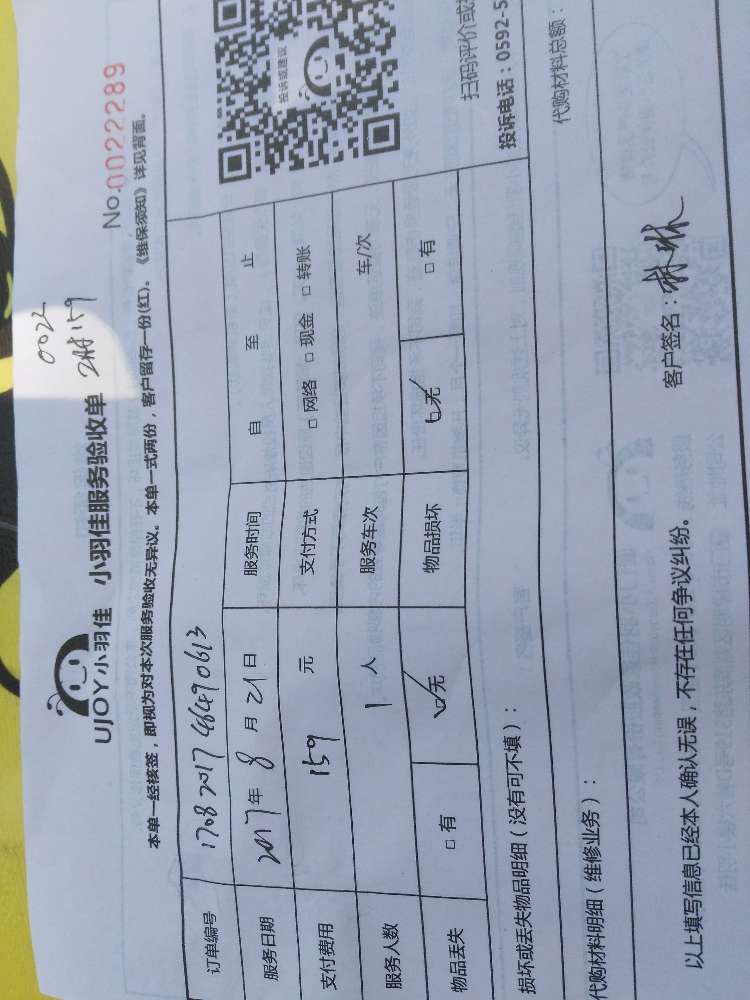 0022
UJOY小羽佳 小羽佳服务验收单 2材159
No.0022289
本单一经核签，即视为对本次服务验收无异议。本单一式两份，客户留存一份(红)。《维保须知》详见背面。
订单编号 1708201746490613
服务日期 2017年8月21日 服务时间 自 至 止
支付费用 159 元 支付方式 □网络 □现金 □转账
服务人数 1 人 服务车次 车/次
物品丢失 □有 ☑无 物品损坏 ☑无 □有
投诉或建议
扫码评价或
投诉电话：0592-5
损坏或丢失物品明细（没有可不填）：
代购材料明细（维修业务）： 代购材料总额：
以上填写信息已经本人确认无误，不存在任何争议纠纷。 客户签名：